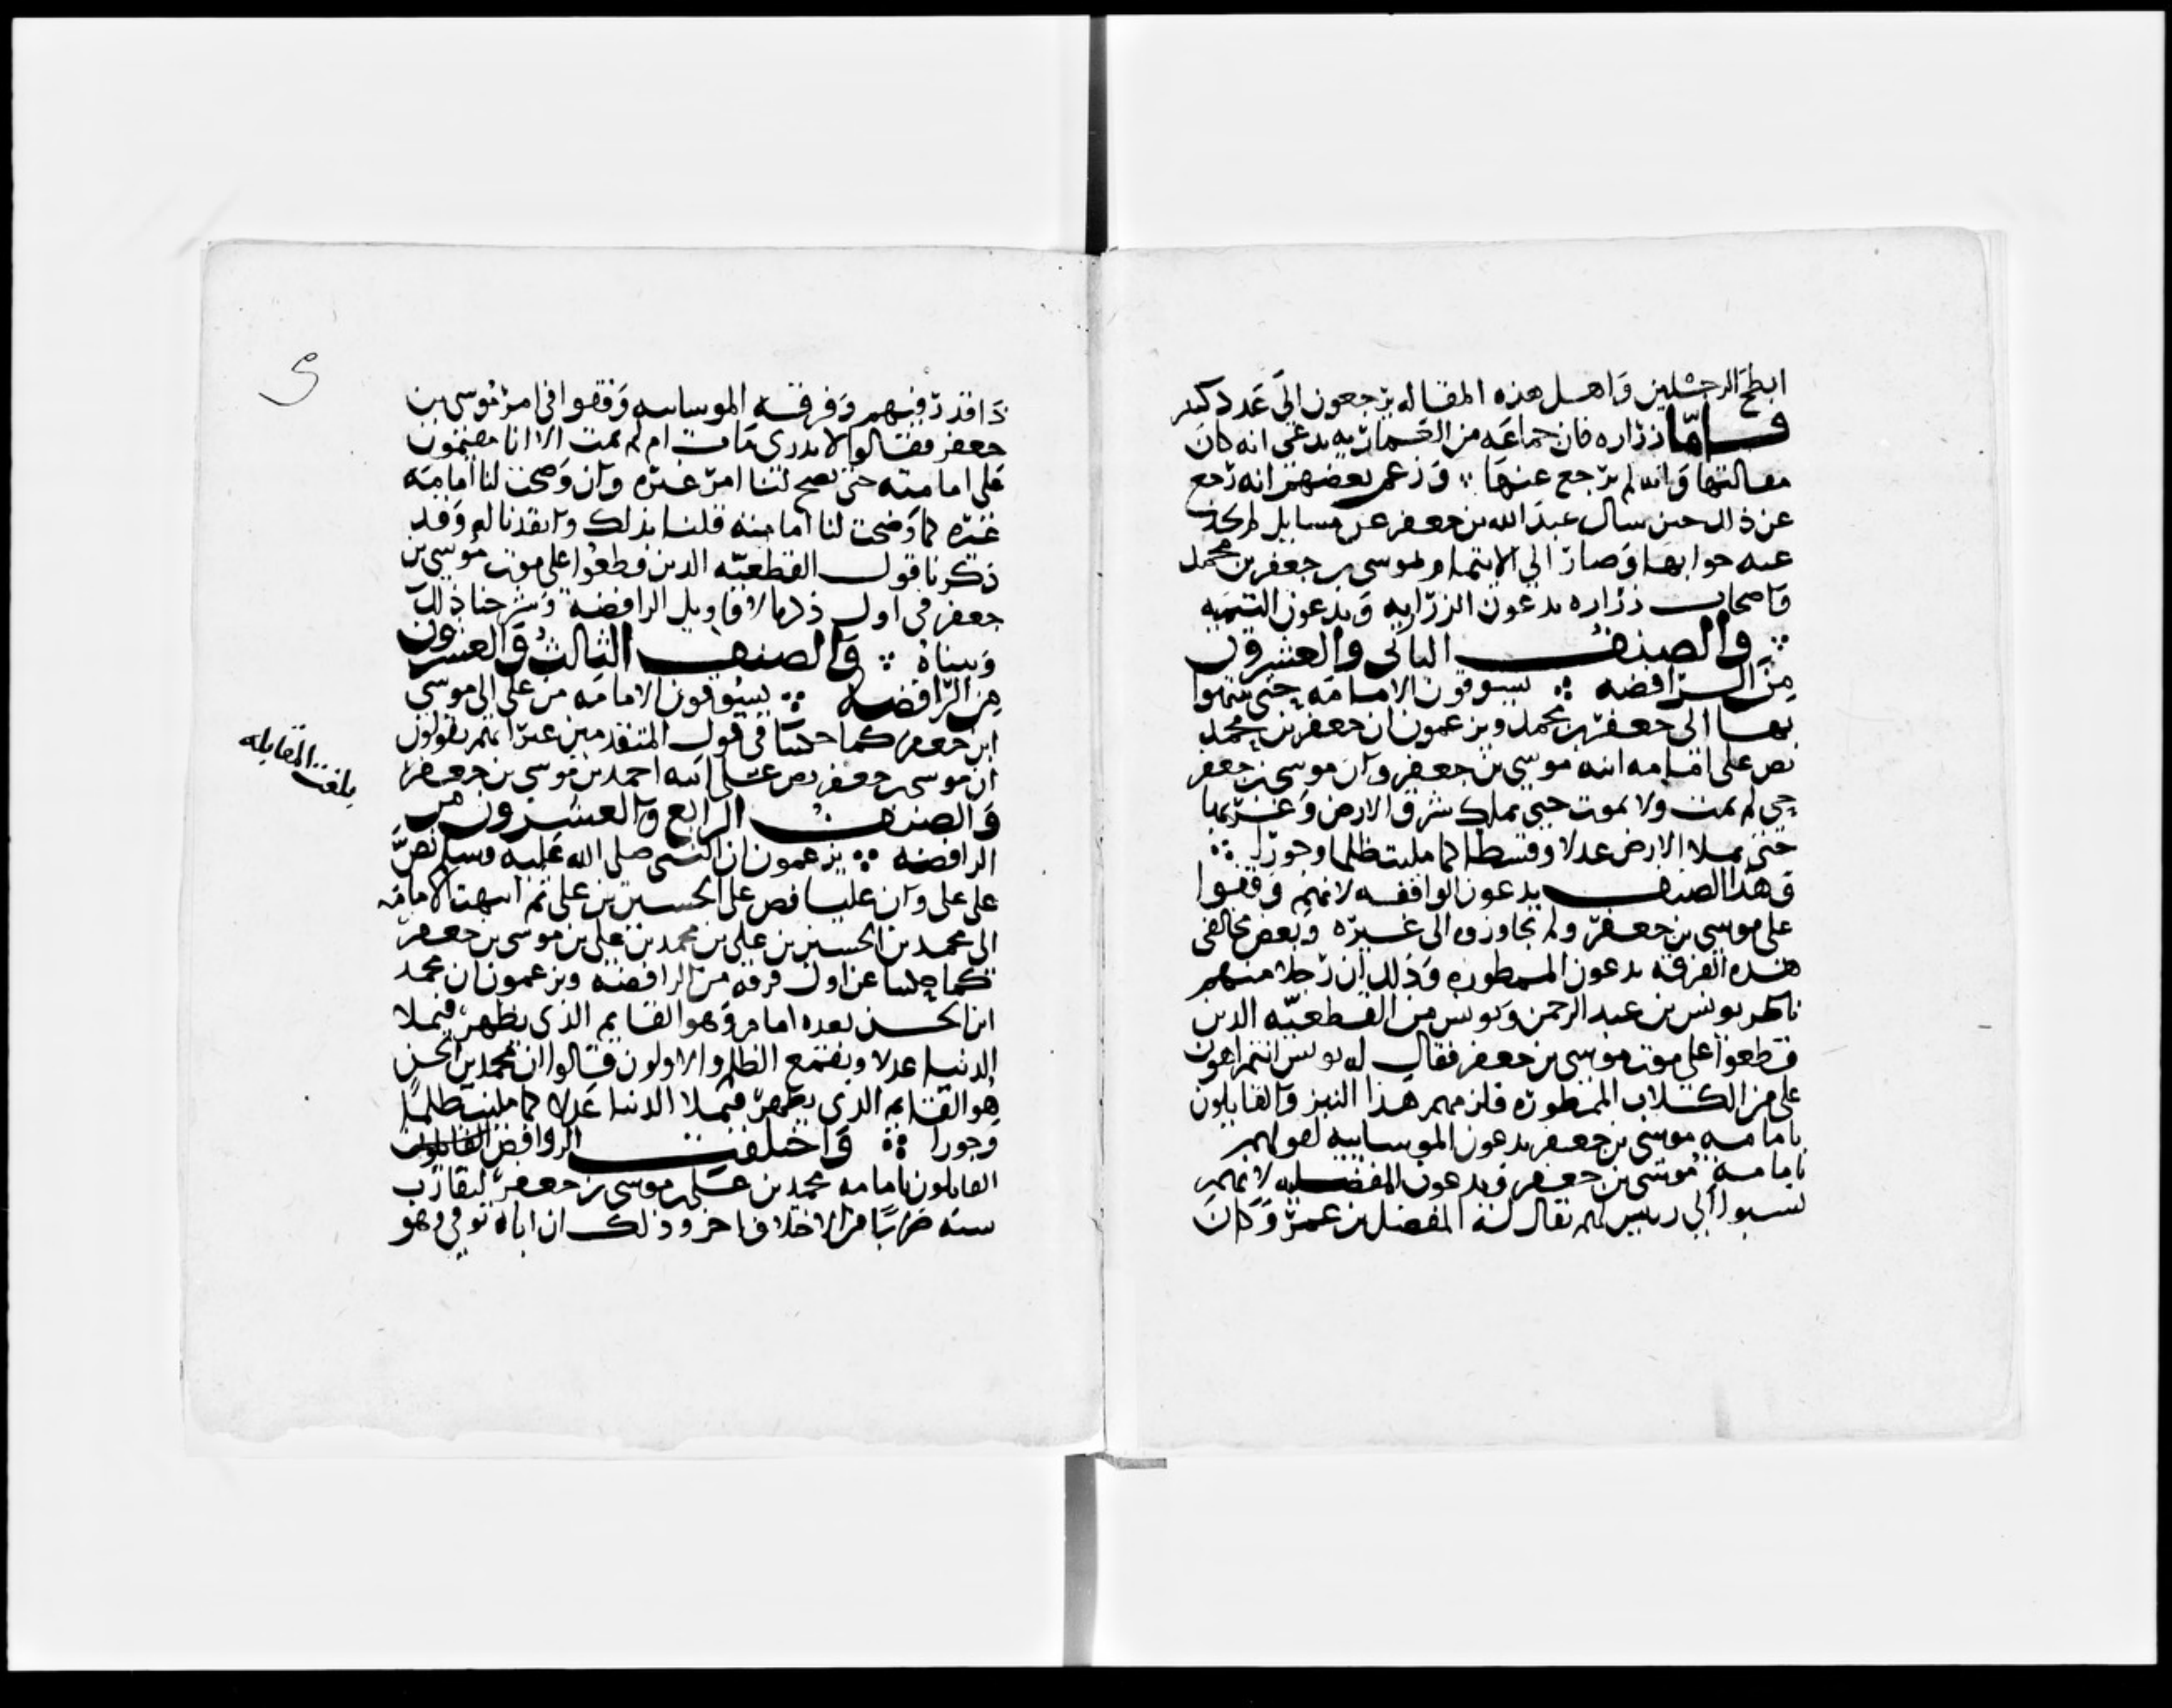 ابطح الرجلين واهل هذه المقاله يرجعون الى عدد كثير
فاما زراره فان جماعه من العماريه يدعى انه كان
مقالتها وانه لم يرجع عنها وزعم بعضهم انه رجع
عن ذلك حين سال عبد الله بن جعفر عن مسايل لم يجد
عنه جوابها وصار الى الايتمام بموسى بن جعفر بن محمد
واصحاب زراره يدعون الزراريه ويدعون التيميه
والصنف الثانى والعشرون
من الرافضه يسوقون الامامه حتى ينتهوا
بها الى جعفر بن محمد ويزعمون ان جعفر بن محمد
نص على امامه ابنه موسى بن جعفر وان موسى بن جعفر
حى لم يمت ولا يموت حتى يملك شرق الارض وغربها
حتى يملا الارض عدلا وقسطا كما مليت ظلما وجورا
وهذا الصنف يدعون الواقفه لانهم وقفوا
على موسى بن جعفر ولم يجاوزوه الى غيره وبعض مخالفى
هذه الفرقه يدعون الممطوره وذلك ان رجلا منهم
ناظر يونس بن عبد الرحمن ويونس من القطعيه الذين
قطعوا على موت موسى بن جعفر فقال له يونس انتم اهون
على من الكلاب الممطوره فلزمهم هذا النبز والقايلون
بامامه موسى بن جعفر يدعون الموسايييه لقولهم
بامامه موسى بن جعفر ويدعون المفضليه لانهم
نسبوا الى رييس لهم يقال له المفضل بن عمر وكان
ذا قدر فيهم وفرقه الموساييه وقفوا فى امر موسى بن
جعفر فقالوا لا ندرى مات ام لم يمت الا انا مقيمون
على امامته حتى يصح لنا امر غيره وان وضحت لنا امامه
غيره كما وضحت لنا امامته قلنا بذلك وانقدنا له وقد
ذكرنا قول القطعيه الذين قطعوا على موت موسى بن
جعفر فى اول ذكرنا لاقاويل الرافضه وشرحنا ذلك
وبيناه والصنف الثالث والعشرون
من الرافضه يسوقون الامامه من على الى موسى
ابن جعفر كما حكينا فى قول المتقدمين غير انهم يقولون
ان موسى بن جعفر نص على ابنه احمد بن موسى بن جعفر
والصنف الرابع والعشرون من
الرافضه يزعمون ان النبى صلى الله عليه وسلم نص
على على وان عليا نص على الحسين بن على ثم انتهت الامامه
الى محمد بن الحسين بن على بن محمد بن على بن موسى بن جعفر
كما حكينا عن اول فرقه من الرافضه ويزعمون ان محمد
ابن الحسن بعده امام وهو القايم الذى يظهر فيملا
الدنيا عدلا ويقمع الظلم والاولون قالوا ان محمد بن الحسن
هو القايم الذى يظهر فيملا الدنيا عدلا كما مليت ظلما
وجورا واختلفت الروافض القايلون
القايلون بامامه محمد بن على بن موسى بن جعفر لتقارب
سنه ضربا من الاختلاف اخر وذلك ان اباه توفى وهو
بلغت المقابله